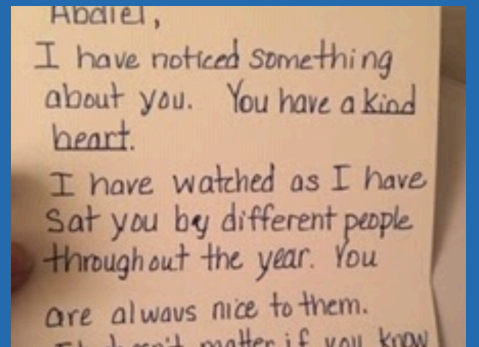 Abdiel,
I have noticed something
about you. You have a kind
heart.
I have watched as I have
Sat you by different people
throughout the year. You
are always nice to them.
It doesn't matter if you know